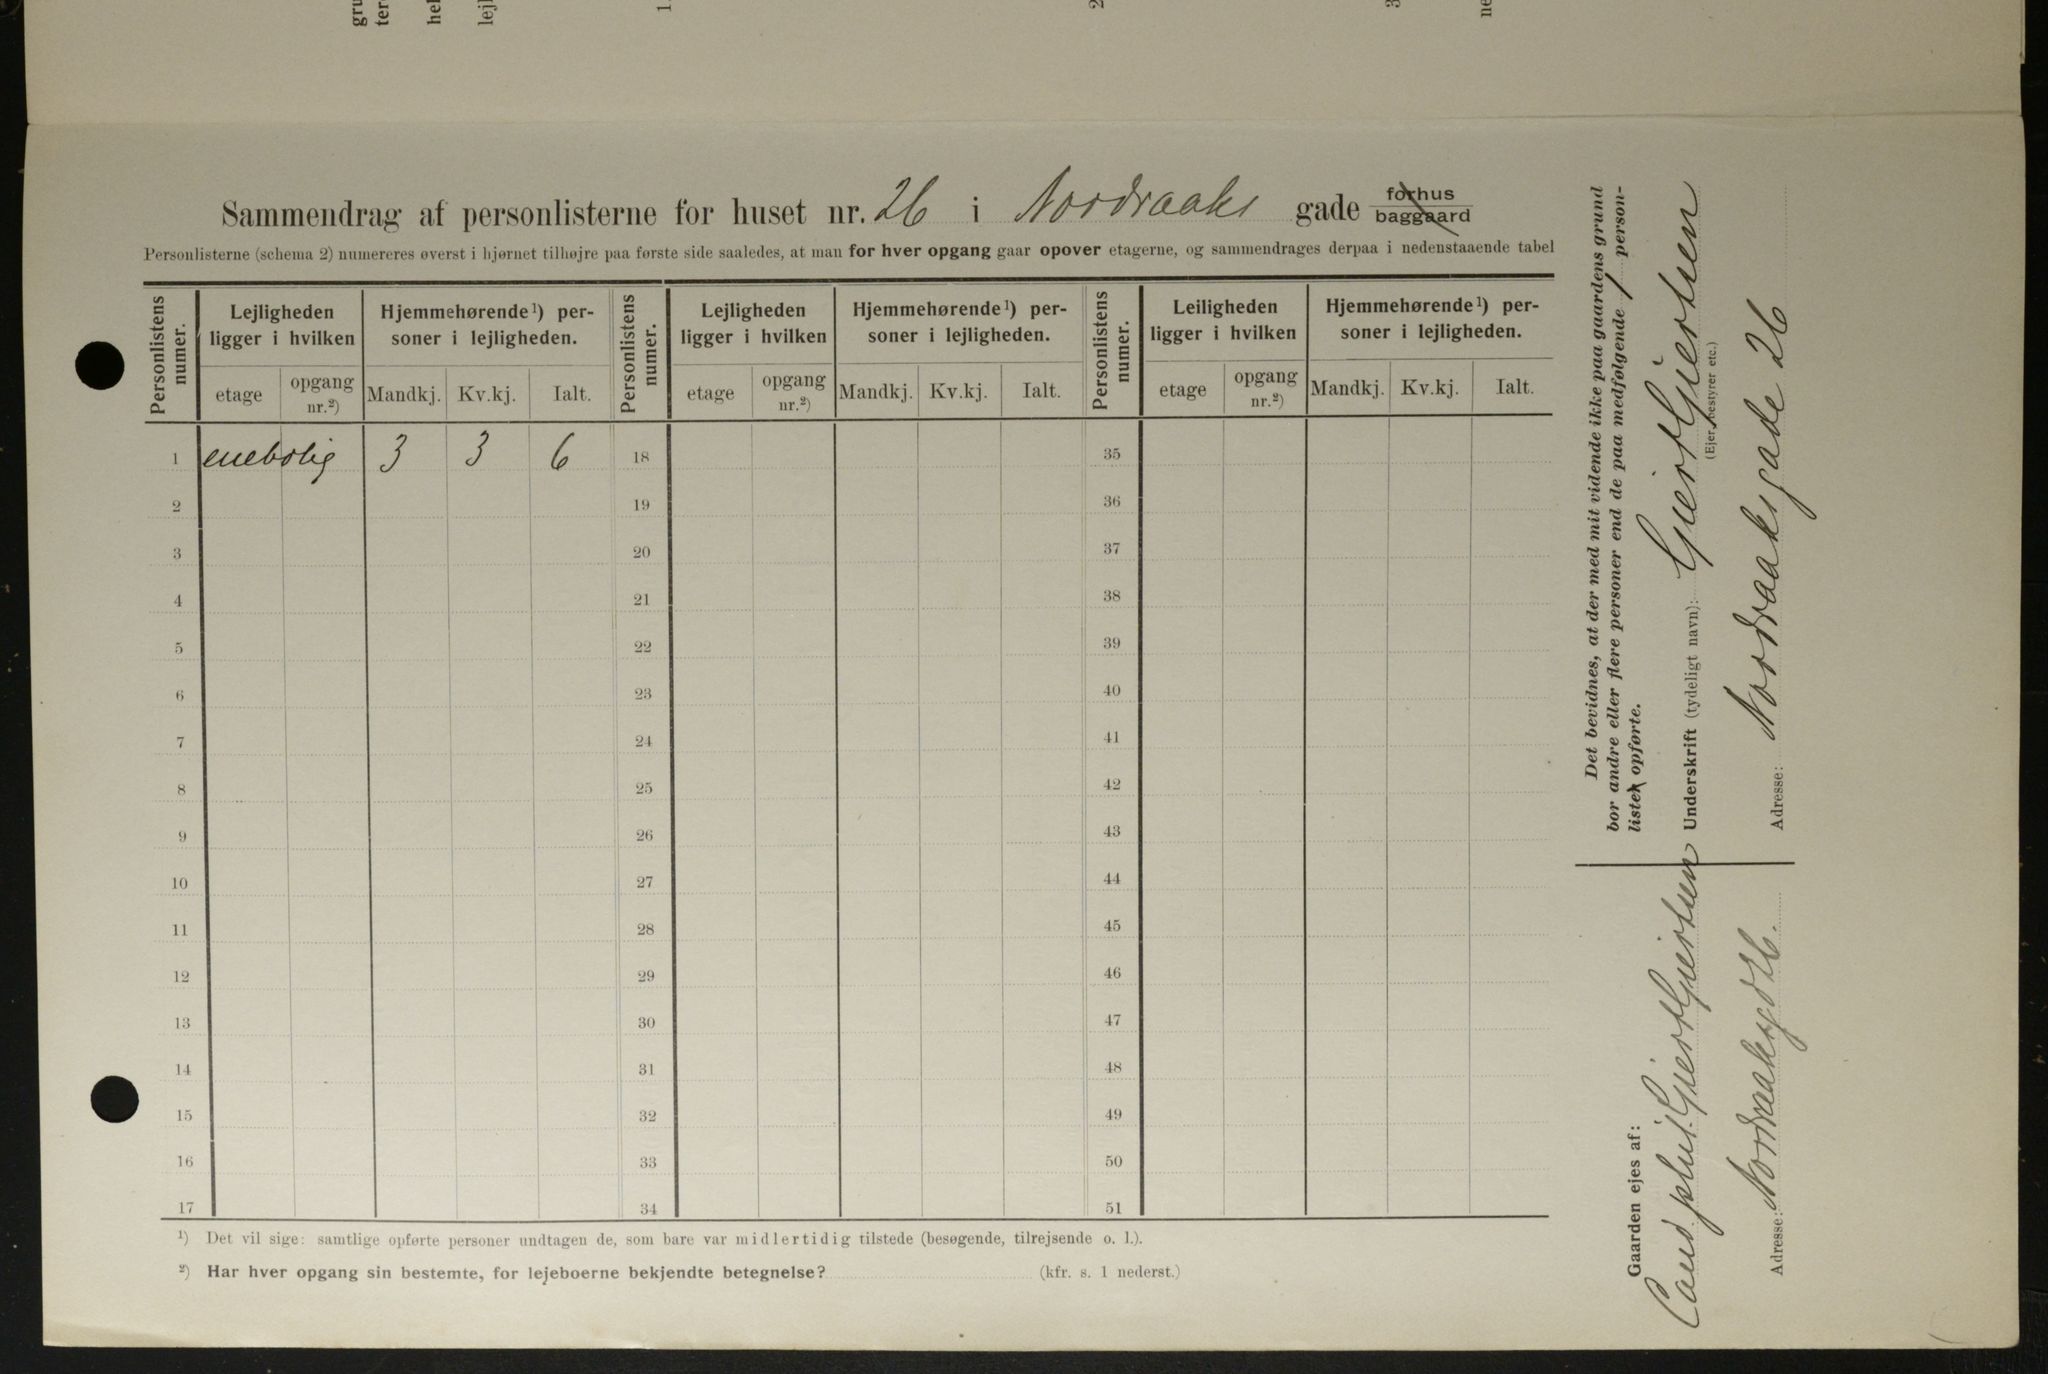 Sammendrag af personlisterne for huset nr. 26 i Nordraaks gade forhus baggaard
Personlisterne (schema 2) numereres øverst i hjørnet tilhøjre paa første side saaledes, at man for hver opgang gaar opover etagerne, og sammendrages derpaa i nedenstaaende tabel
Personlistens numer. Lejligheden ligger i hvilken Hjemmehørende¹) personer i lejligheden. Personlistens numer. Lejligheden ligger i hvilken Hjemmehørende¹) personer i lejligheden. Personlistens numer. Leiligheden ligger i hvilken Hjemmehørende¹) personer i lejligheden.
etage opgang nr.²) Mandkj. Kv.kj. Ialt. etage opgang nr.²) Mandkj. Kv.kj. Ialt. etage opgang nr.²) Mandkj. Kv.kj. Ialt.
1 enebolig 3 3 6 18 35
2 19 36
3 20 37
4 21 38
5 22 39
6 23 40
7 24 41
8 25 42
9 26 43
10 27 44
11 28 45
12 29 46
13 30 47
14 31 48
15 32 49
16 33 50
17 34 51
¹) Det vil sige: samtlige opførte personer undtagen de, som bare var midlertidig tilstede (besøgende, tilrejsende o. l.).
²) Har hver opgang sin bestemte, for lejeboerne bekjendte betegnelse? (kfr. s. 1 nederst.)
Det bevidnes, at der med mit vidende ikke paa gaardens grund
bor andre eller flere personer end de paa medfølgende 1 person-
lister opførte.
Underskrift (tydeligt navn): Gjert Gjertsen
(Ejer, bestyrer etc.)
Adresse: Nordraaksgade 26
Gaarden ejes af:
Cand phil. Gjert Gjertsen
Adresse: Nordraaksgd 26.